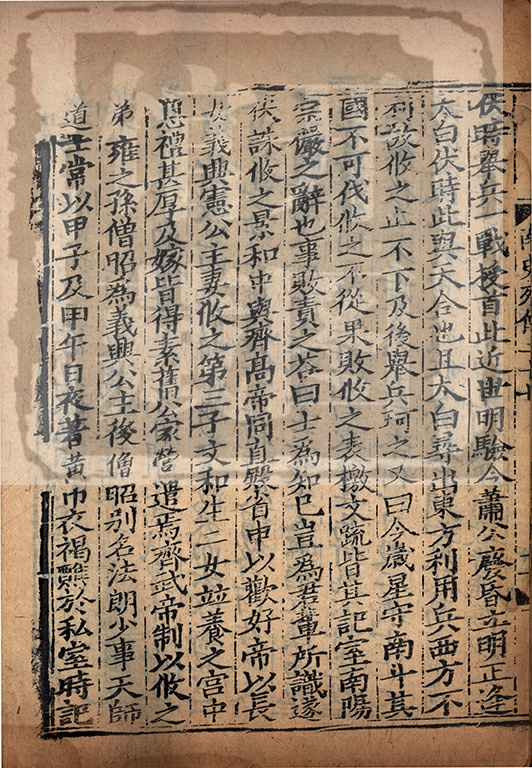 伏時舉兵一戰授首此近世明驗今蕭公廢昏立明正逢
太白伏時此與天合也且太白尋出東方利用兵西方不
利故攸之止不下及後舉兵珂之又曰今歲星守南斗其
國不可伐攸之不從果敗攸之表檄文疏皆其記室南陽
宗儼之辭也事敗責之荅曰士為知己豈為君輩所識遂
伏誅攸之景和中與齊高帝同直殿省申以歡好帝以長
女義興憲公主妻攸之第三子文和生二女並養之宮中
恩禮甚厚及嫁皆得素舊公家營遣焉齊武帝制以攸之
弟雍之孫僧昭為義興公主後僧昭別名法朗少事天師
道士常以甲子及甲午日夜著黃巾衣褐醮於私室時記